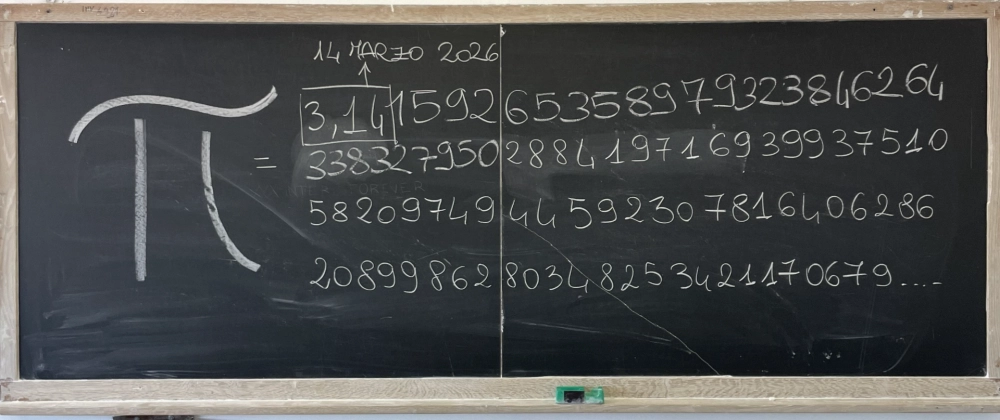 14 MARZO 2026
π = 3,14159265358979323846264
338327950288419716939937510
58209749445923078164062​86
2089986280348253421170679....